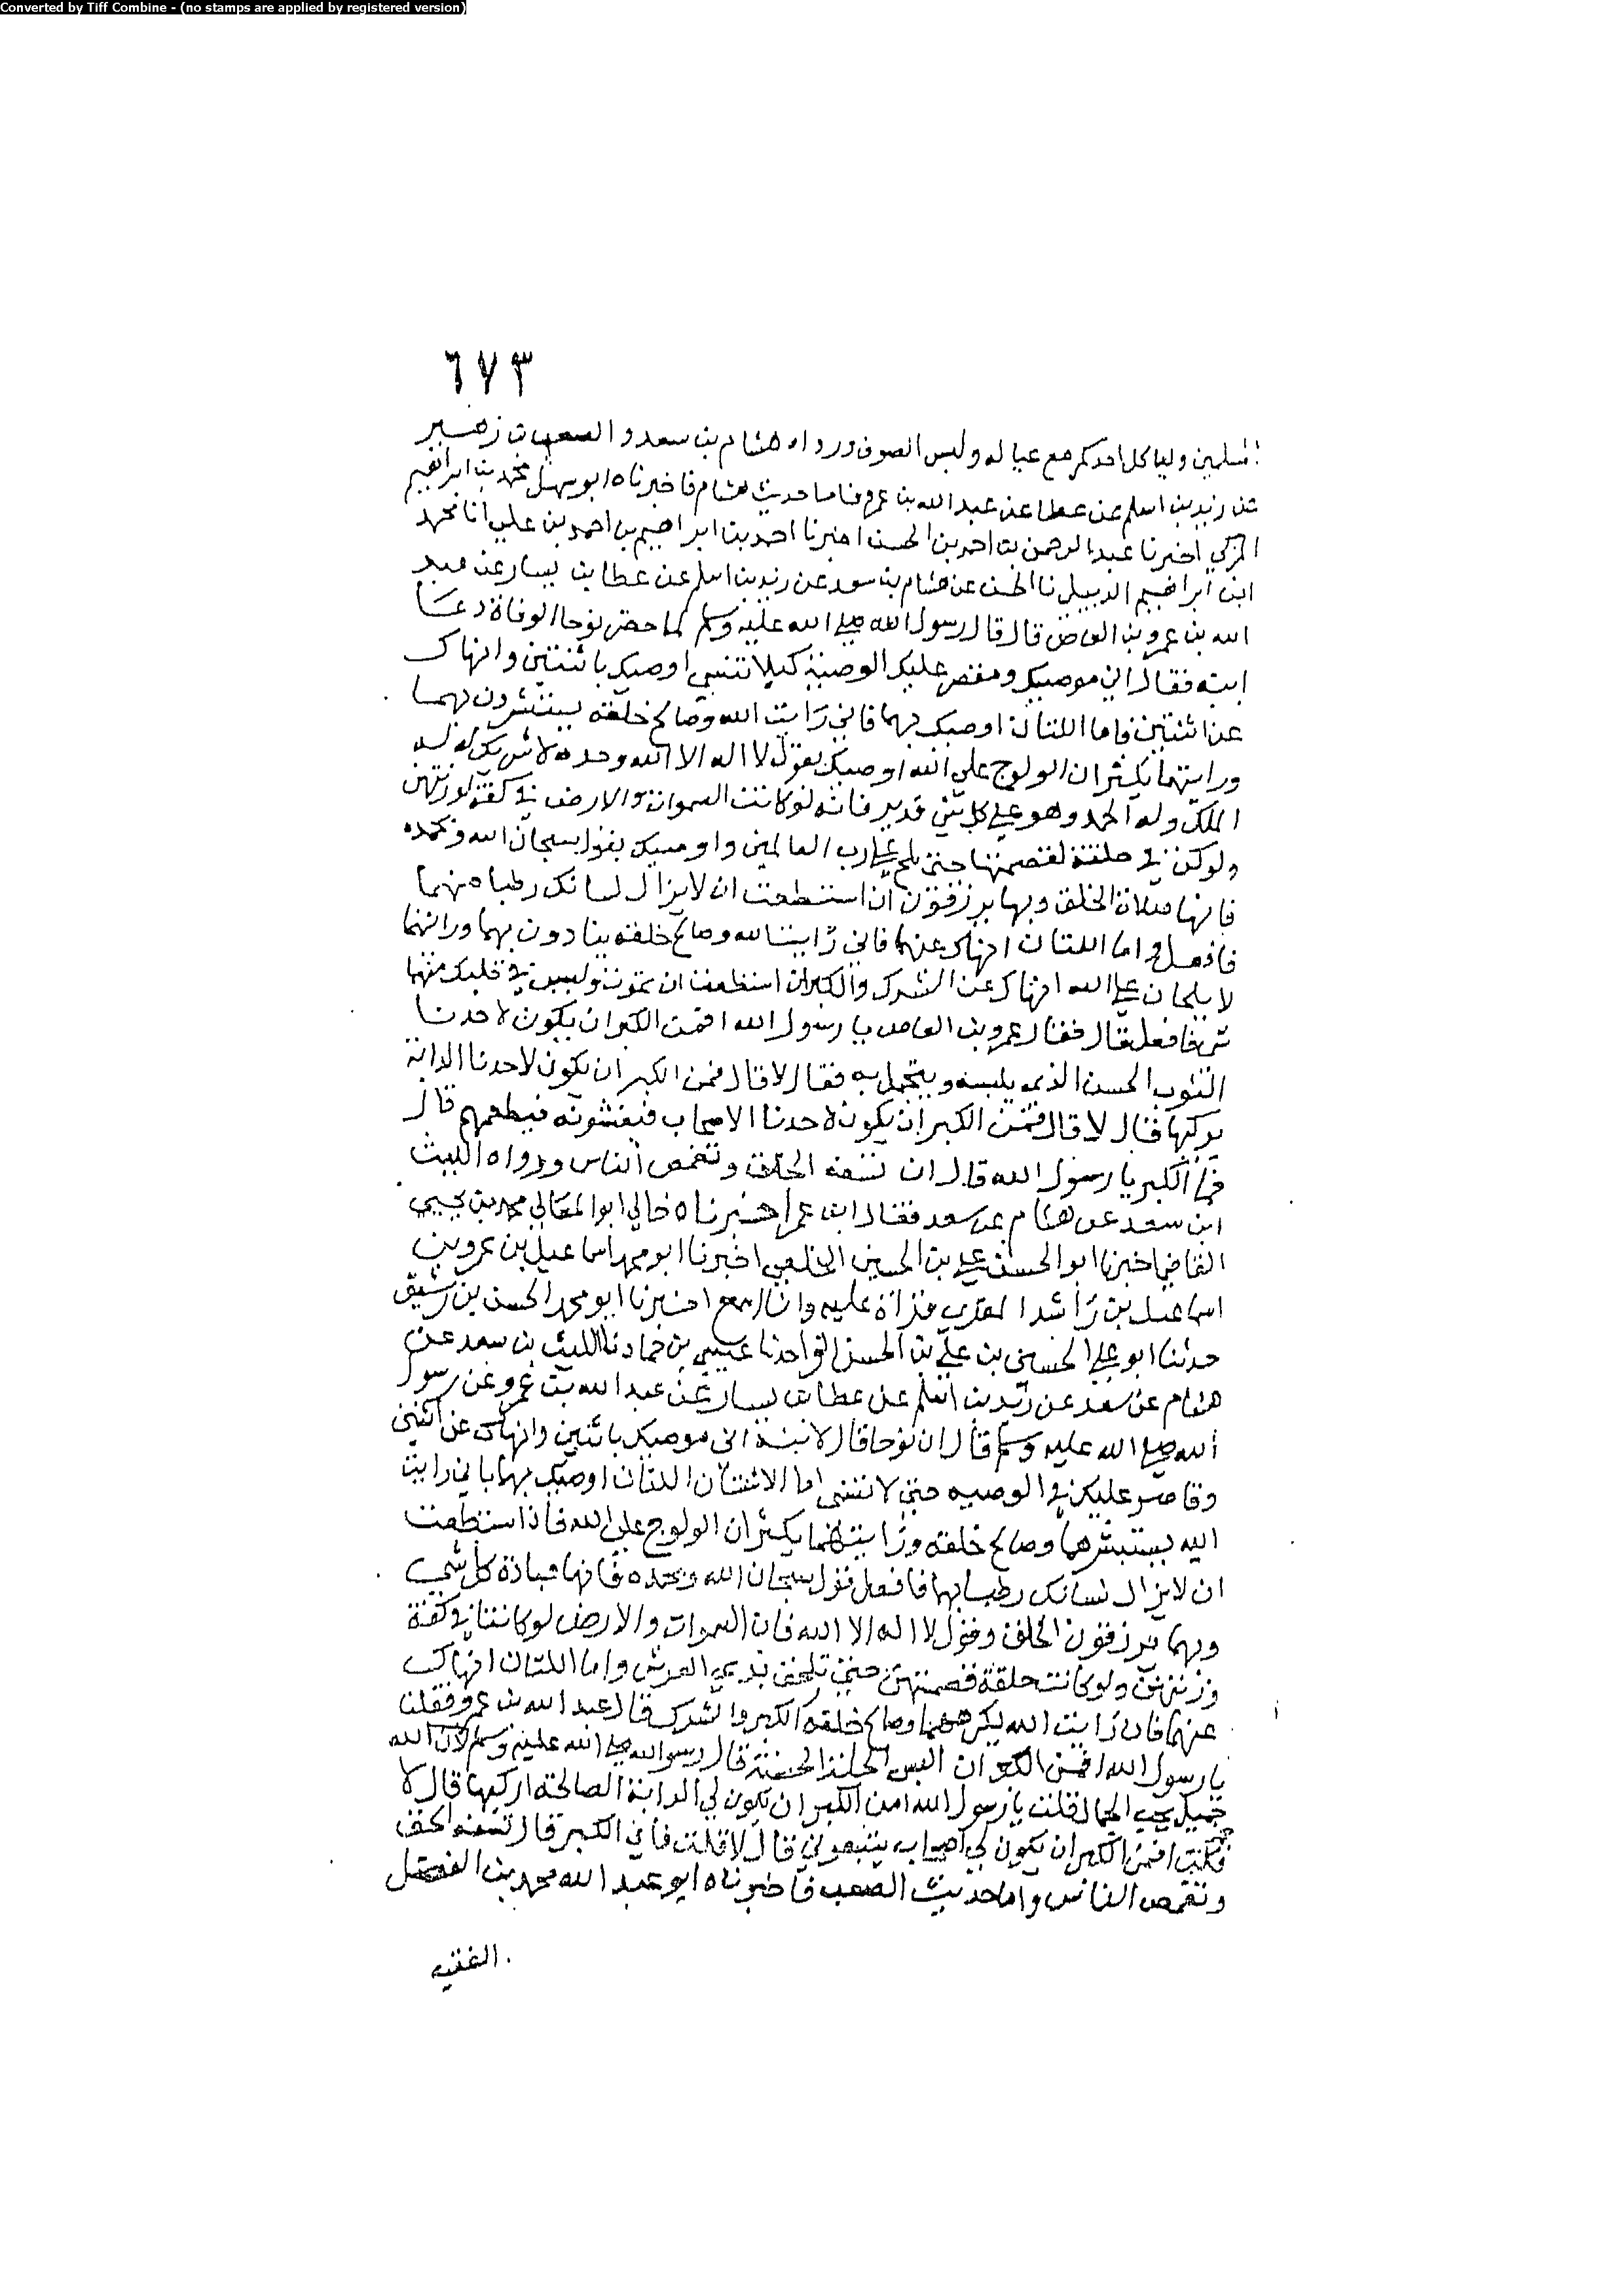 Converted by Tiff Combine - (no stamps are applied by registered version)
٦٧٣
المسلمين ولياكل احدكم مع عياله ولبس الصوف ورواه هشام بن سعد والصعب بن زهير
عن زيد بن اسلم عن عطا عن عبد الله بن عمرو فاما حديث هشام فاخبرناه ابو سهل محمد بن ابراهيم
المزكي اخبرنا عبد الرحمن بن احمد بن الحسن اخبرنا احمد بن ابراهيم بن احمد بن علي انا محمد
ابن ابراهيم الديبلي نا الحسن عن هشام بن سعد عن زيد بن اسلم عن عطا بن يسار عن عبد
الله بن عمرو بن العاص قال قال رسول الله صلى الله عليه وسلم لما حضر نوحا الوفاة دعا
ابنه فقال اني موصيك ومقصر عليك الوصية كيلا تنسى اوصيك باثنتين وانهاك
عن اثنتين فاما اللتان اوصيك بهما فاني رايت الله وصالح خلقه يستبشرون بهما
ورايتهما يكثران الولوج على الله اوصيك بقول لا اله الا الله وحده لا شريك له له
الملك وله الحمد وهو على كل شي قدير فانه لو كانت السموات والارض في كفة لوزنتهن
ولو كن في حلقة لقصمتها حتى تلج على رب العالمين واوصيك بقول سبحان الله وبحمده
فانها صلاة الخلق وبها يرزقون ان استطعت ان لا يزال لسانك رطبا منهما
فافعل واما اللتان انهاك عنهما فاني رايت الله وصالح خلقه ينادون بهما ورايتهما
لا يلجان على الله انهاك عن الشرك والكبر ان استطعت ان تموت وليس في قلبك منهما
شي فافعل قال فقال عمرو بن العاص يا رسول الله افمن الكبر ان يكون لاحدنا
الثوب الحسن الذي يلبسه ويتجمل به فقال لا قال فمن الكبر ان تكون لاحدنا الدابة
يركبها قال لا قال فمن الكبر ان يكون لاحدنا الاصحاب فيغشونه فيطعمهم قال
فما الكبر يا رسول الله قال ان تسفه الحق وتغمص الناس ورواه الليث
ابن سعد عن هشام بن سعد فقال ابن عمر اخبرناه خالي ابو المعالي محمد بن يحيى
القاضي اخبرنا ابو الحسن علي بن الحسين الخلعي اخبرنا ابو محمد اسماعيل بن عمرو بن
اسماعيل بن راشد المقرى قراة عليه وانا اسمع اخبرنا ابو محمد الحسن بن رشيق
حدثنا ابو علي الحسين بن علي بن الحسن نا عيسى بن حماد نا الليث بن سعد عن
هشام عن سعد عن زيد بن اسلم عن عطا بن يسار عن عبد الله بن عمرو عن رسول
الله صلى الله عليه وسلم قال ان نوحا قال لابنه اني موصيك باثنتين وانهاك عن اثنتين
وقاصر عليك في الوصيه حتى لا تنسى اما الاثنتان اللتان اوصيك بهما باني رايت
الله يستبشر بهما وصالح خلقه ورايتهما يكثران الولوج على الله فاذا استطعت
ان لا يزال لسانك رطبا بها فافعل قول سبحان الله وبحمده فانها عبادة كل شي
وبهما يرزقون الخلق وقول لا اله الا الله فان السموات والارض لو كانتا في كفة
وزنتهن ولو كانت حلقة قصمتهن حتى تلحق بذي العرش واما اللتان انهاك
عنهما فان رايت الله يكرههما وصالح خلقه الكبر والشرك قال عبد الله بن عمرو فقلت
يا رسول الله افمن الكبر ان البس الحلة الحسنة قال رسول الله صلى الله عليه وسلم لا ان الله
جميل يحب الجمال فقلت يا رسول الله امن الكبر ان تكون لي الدابة الصالحة اركبها قال لا
فقلت افمن الكبر ان يكون لي اصحاب يتبعوني قال لا قلت فاني الكبر قال تسفه الحق
وتغمص الناس واما حديث الصعب فاخبرناه ابو عبد الله محمد بن الفضل
الفقيه